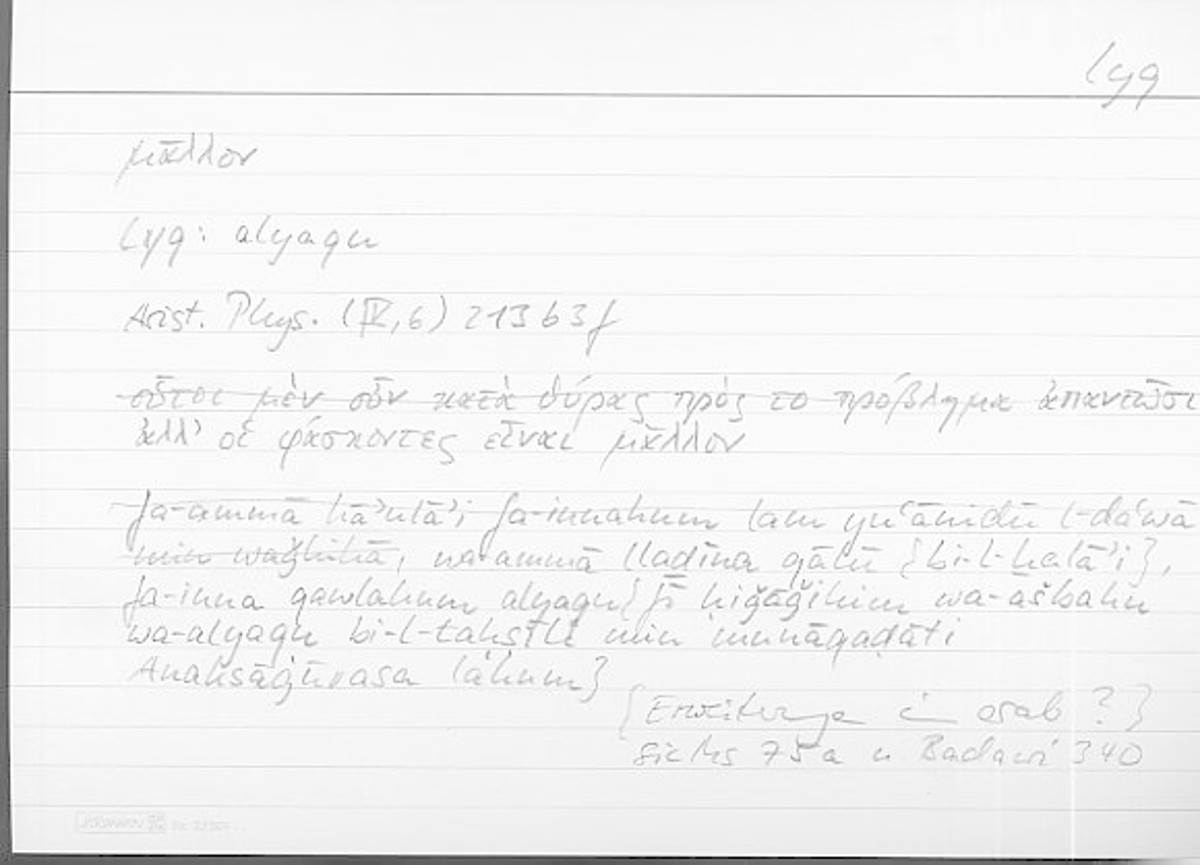 lyq
μᾶλλον
lyq: alyaqu
Arist. Phys. (IV,6) 213 b 3 f
οὗτοι μὲν οὖν κατὰ θύρας πρὸς το πρόβλημα ἀπαντῶσι
ἀλλ' οἱ φάσκοντες εἶναι μᾶλλον
fa-ammā hāʾulāʾi fa-innahum lam yuʿānidū l-daʿwā
min waǧhihā, wa-ammā lladīna qālū {bi-l-ḫalāʾi},
fa-inna qawlahum alyaqu {fī ḥiǧāǧihim wa-ašbahu
wa-alyaqu bi-l-taḥṣīli min munāqaḍāti
Anaksāġūrasa lahum}
{Erweiterung im arab ?}
sic Ms 75a u Badawī 340